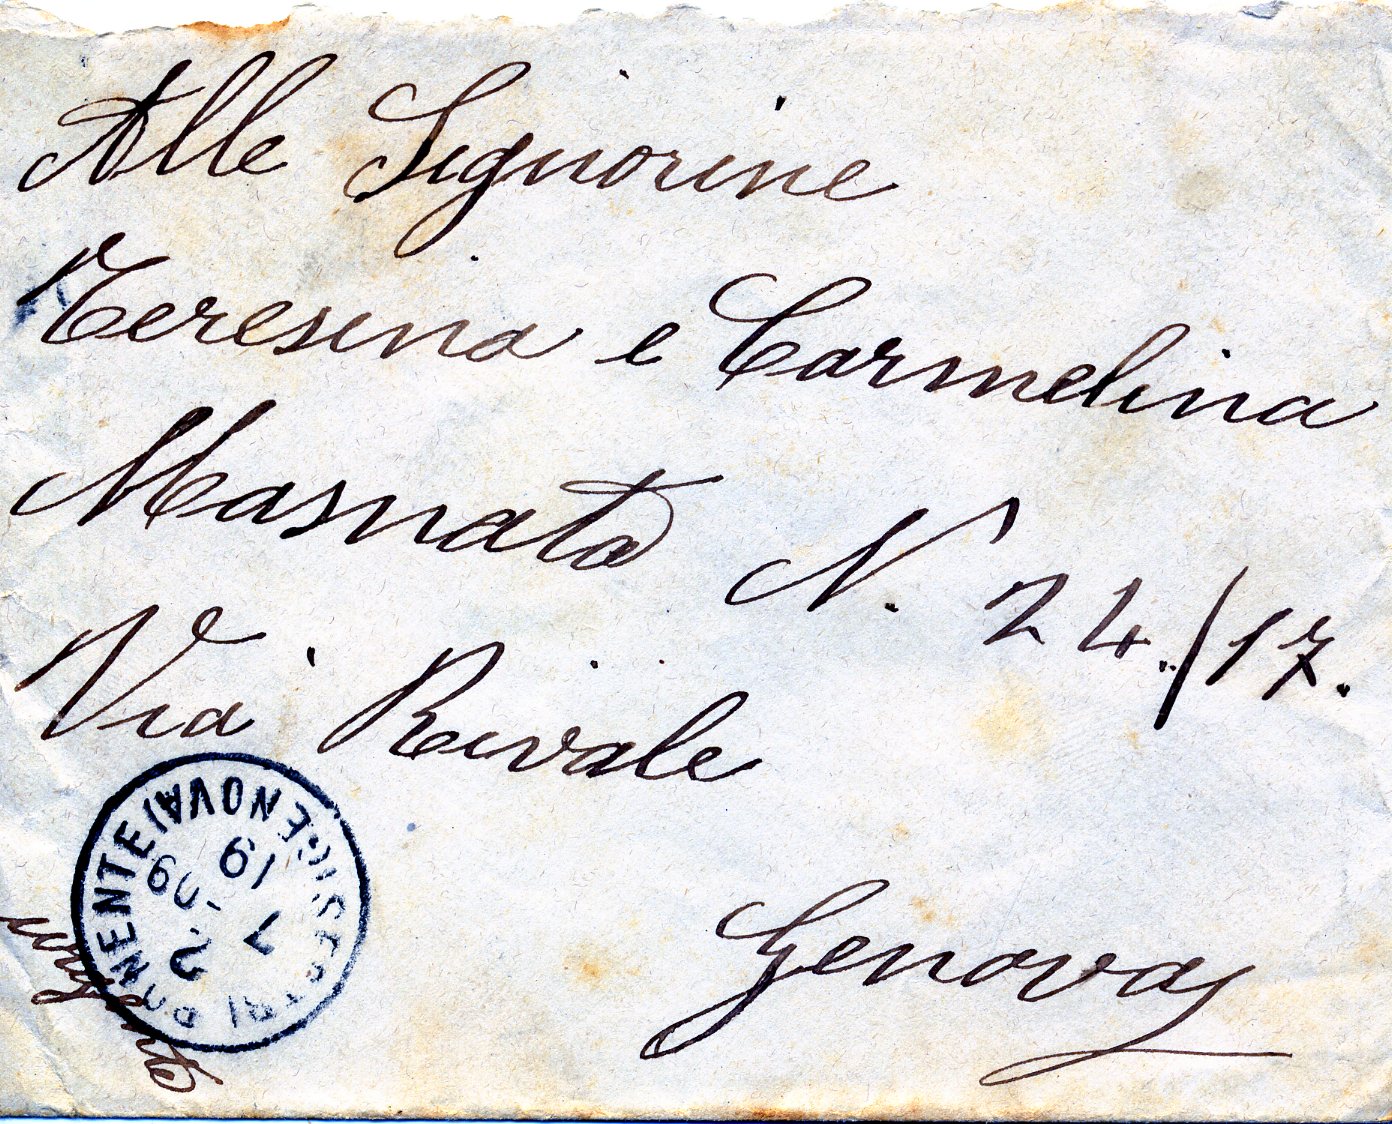 Alle Signorine
Teresina e Carmelina
Masnata N. 24./17.
Via Rivale
Genova
SESTRI PONENTE (GENOVA)
19
7 2 09
urgente